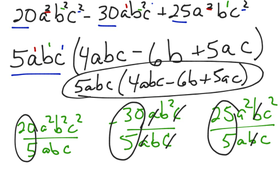 20a²b²c² - 30a¹b²c¹ + 25a²b¹c²
5a¹b¹c¹ (4abc - 6b + 5ac)
5abc (4abc - 6b + 5ac)
20a²b²c²/5abc - 30ab²c/5abc 25a²bc²/5abc